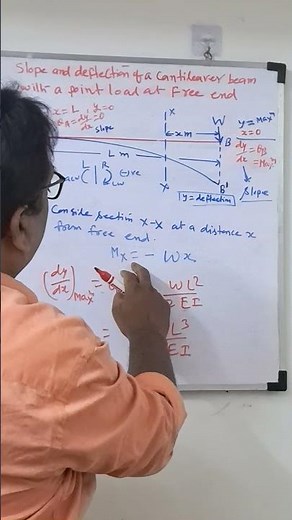 Slope and deflection of a Cantileaver beam
with a point load at free end
x = L y = 0
θA = dy/dx = 0
slope
X
x m
W
y = Max^m
x = 0
B
dy/dx = θB = Max^m
Slope
L m
L R
ACW CW
-ve
X
B'
y = deflection
Conside section X-X at a distance x
form free end.
Mx = - Wx
(dy/dx)Max^m = WL²/2EI
= L³/EI